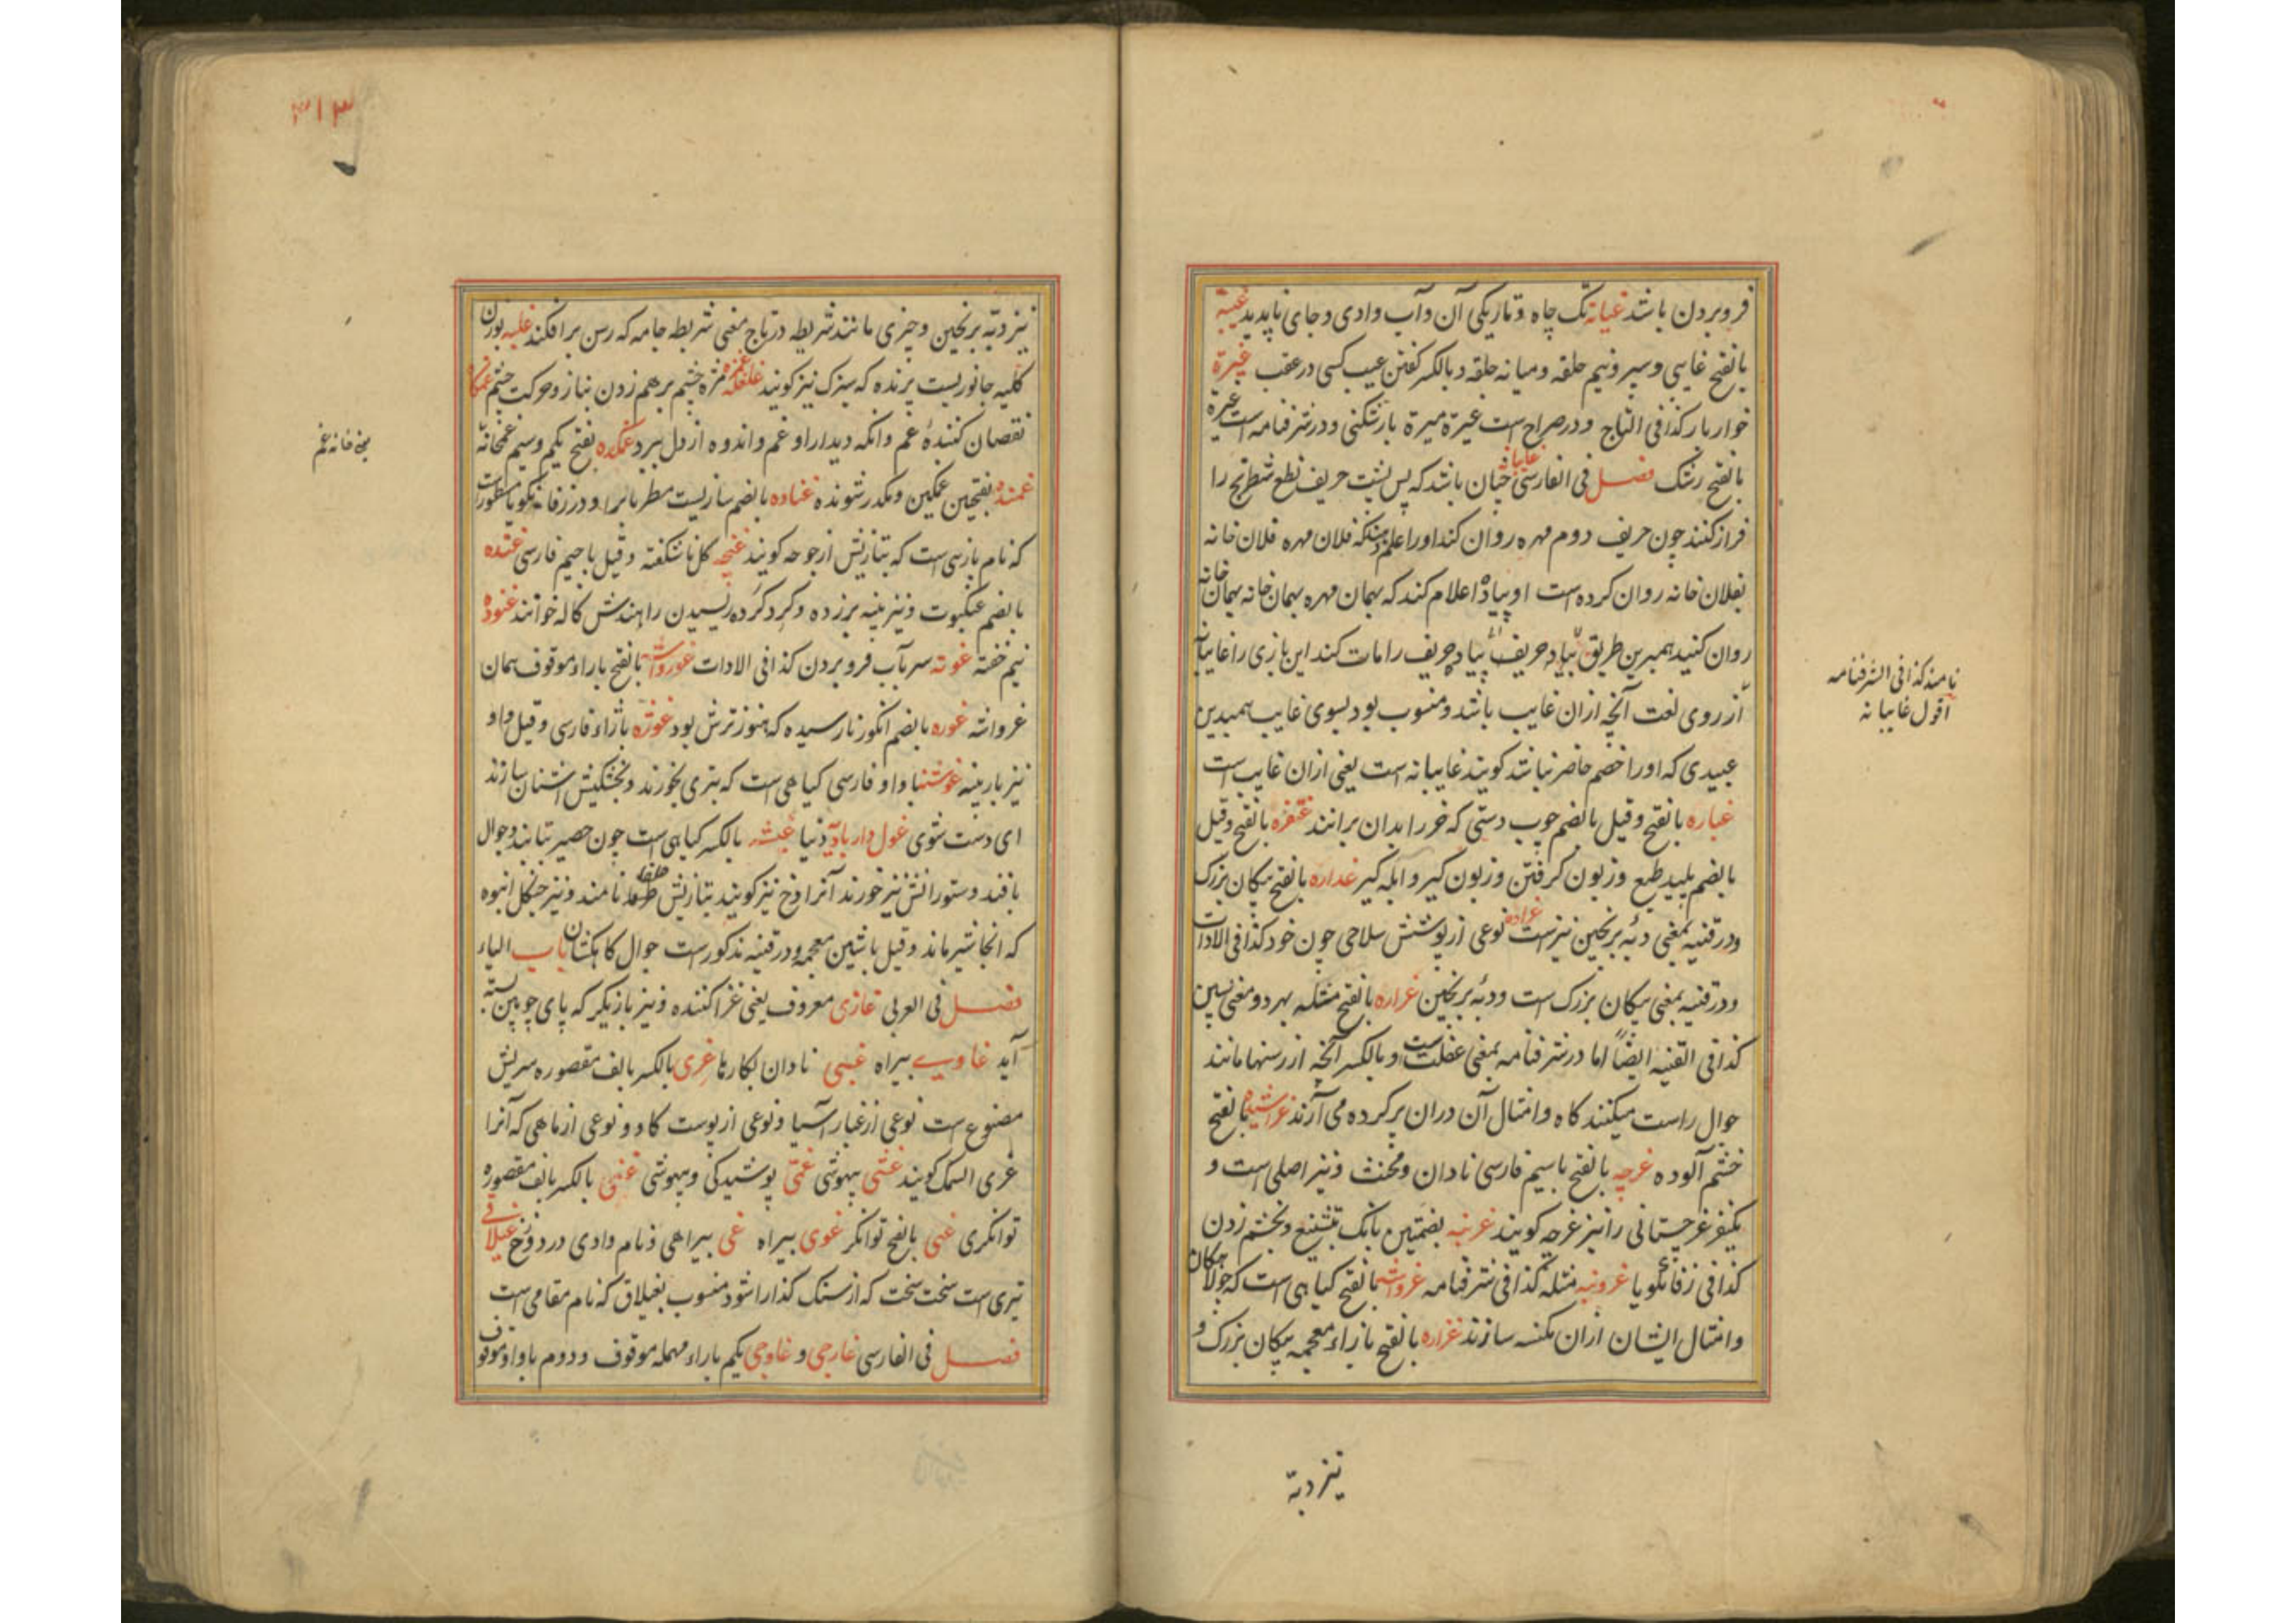 فروبردن باشد غیابه تک چاه و تاریکی آن و آب وادی و جای ناپدید غیبة
بالفتح غایبی و سپر و نیم حلقه و میانه حلقه و بالکسر گفتن عیب کسی در عقب غیرة
خواربار کذا فی التاج و در صراح است غیرة میرة بارشکنی و در شرفنامه است غیرة
بالفتح رشک فصل فی الفارسی غایبانه چنان باشد که پس پشت حریف نطع شطرنج را
فراز کنند چون حریف دوم مهره روان کند او را اعلام دهند که فلان مهره فلان خانه
بفلان خانه روان کرده است او پیاده اعلام کند که بهمان مهره بهمان خانه بهمان خانه
روان کنید همبرین طریق حریف را مات کند این بازی را غایبانه
نامند کذا فی الشرفنامه
اقول غایبانه
از روی لغت آنچه ازان غایب باشد و منسوب بود بسوی غایب همبدین
عبیدی که او را خصم حاضر نباشد گویند غایبانه است یعنی ازان غایب است
غباره بالفتح و قیل بالضم چوب دستی که خر را بدان برانند غتفره بالفتح و قیل
بالضم پلید طبع و زبون گرفتن و زبون گیر و ابله گیر غداره بالفتح پیکان بزرگ
و در قنیه بمعنی دبه برنجین نیز است غراده نوعی از پوشش سلاحی چون خود کذا فی الادات
و در قنیه بمعنی پیکان بزرگ است و دبه برنجین غراره بالفتح مثله بهر دو معنی پسین
کذا فی القنیه ایضاً اما در شرفنامه بمعنی غفلت است و بالکسر آنچه از رسنها مانند
جوال راست میکنند کاه و امثال آن دران پر کرده می آرند غراشیده بالفتح
خشم آلوده غرچه بالفتح باسیم فارسی نادان و مخنث و نیز اصلی است و
یکنفر غرجستانی را نیز غرچه گویند غرنبه بضمتین بانگ تشنیع و بخشم زدن
کذا فی زفانگویا غرونبه مثله کذا فی شرفنامه غرواشه بالفتح گیاهی است که جولاهگان
و امثال ایشان ازان مکنسه سازند غزاره بالفتح بازاء معجمه پیکان بزرگ و
نیز دبة
۳۱۳
نیز دبه برنجین و چیزی مانند شریطه در تاج معنی شریطه جامه که رسن برافکند غلبه بوزن
کلبه جانوریست پرنده که سبزک نیز گویند غلغله غمزه مژه چشم برهم زدن بناز و حرکت چشم
نقصان کنندهٔ غم و آنکه دیدار او غم و اندوه از دل ببرد غمکده بفتح یکم و سیم غمخانه
یعنی خانه غم
غمنده بفتحتین غمگین و مکدر شونده غناده بالضم سازیست مطربانرا و در زفانگویا مسطور است
که نام بازی است که بتازیش ارجوحه گویند غنچه گل ناشگفته و قیل با جیم فارسی غنده
بالضم عنکبوت و نیز پنبه برزده و گرد کرده ریسیدن را بهندش کاله خوانند غنوده
نیم خفته غوته سر بآب فروبردن کذا فی الادات غوروآشه بالفتح باراء موقوف همان
غرواشه غوره بالضم انگور نارسیده که هنوز ترش بود غوزه باژاء فارسی و قیل واو
نیز باریبه غوشنه با واو فارسی گیاهی است که بتری بخورند و بخشکیش اشنان سازند
ای دست شوی غول دار باد دنیا غیشه بالکسر گیاهی است چون حصیر بتابند و جوال
بافند و ستورانش نیز خورند آنرا دخ نیز گویند بتازیش حلفا نامند و نیز جنگل انبوه
که انجا شیر ماند و قیل با شین معجمه و در قنیه مذکور است جوال کاه کشان باب الیاء
فصل فی العربی غازی معروف یعنی غزا کننده و نیز بازیگر که پای چوبین بسته
آید غاوی بیراه غبی نادان بکارها غری بالکسر بالف مقصوره سریش
مصنوع است نوعی از غبار آسیا و نوعی از پوست گاو و نوعی از ماهی که آنرا
غری السمک گویند غشی بیهوشی غمی پوشیدگی و بیهوشی غنی بالکسر بالف مقصوره
توانگری غنی بالفتح توانگر غوی بیراه غی بیراهی و نام وادی در دوزخ غیلاقی
تیری است سخت سخت که از سنگ گذارا شود منسوب بغیلاق که نام مقامی است
فصل فی الفارسی غارجی و غاوجی یکم باراء مهمله موقوف و دوم باواو موقوف